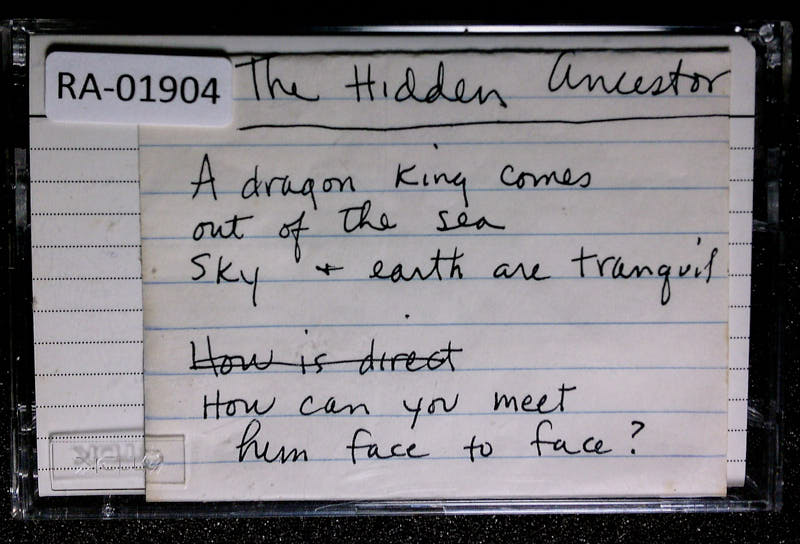 RA-01904 The Hidden Ancestor
A dragon King comes
out of the sea
Sky + earth are tranquil
How is direct
How can you meet
him face to face?